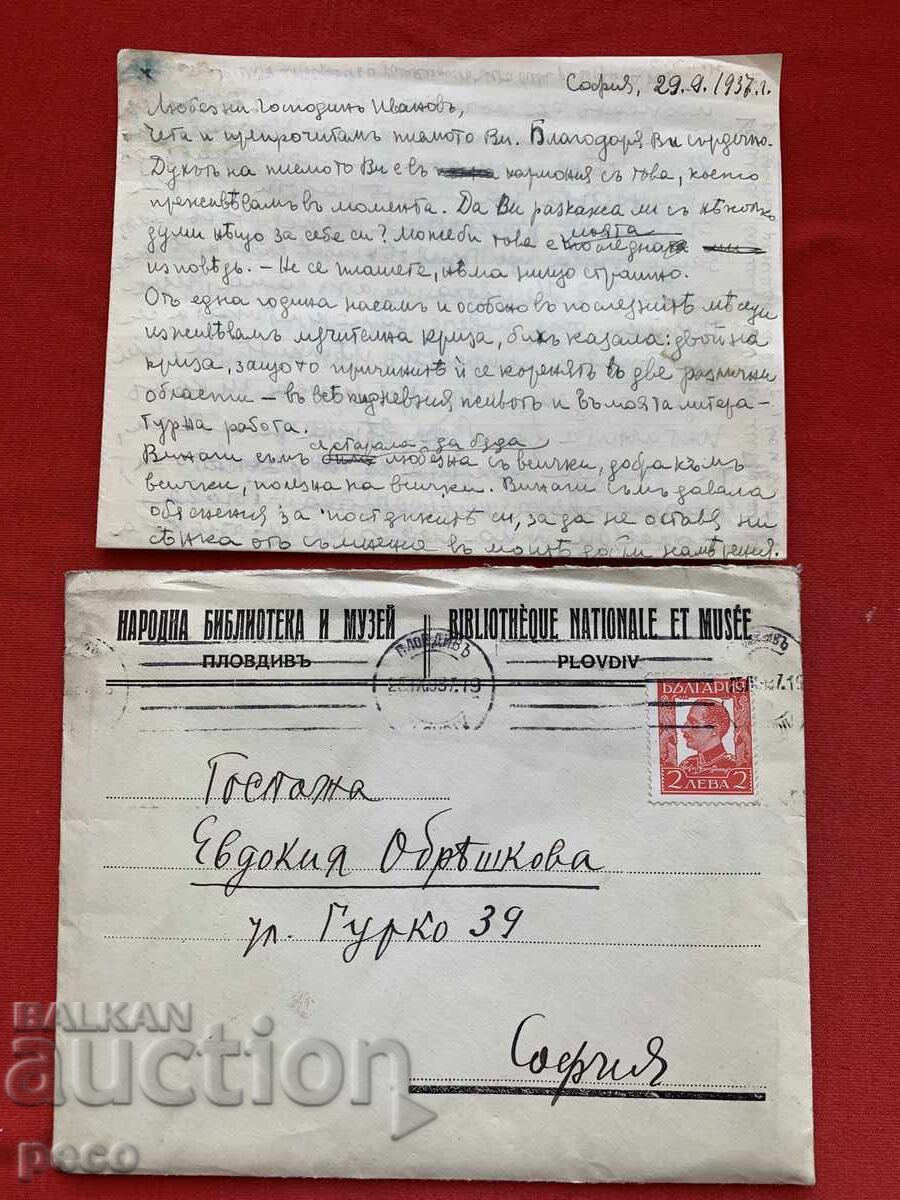 София, 29.9.1937.г.
Любезни Господинъ Ивановъ,
Чета и препрочитамъ писмото Ви. Благодаря Ви сърдечно.
Духътъ на писмото Ви е въ хармония съ това, което
преживѣвамъ въ момента. Да Ви разкажа ли съ нѣколко
думи нѣщо за себе си? Може би това е моята последна
изповѣдь. – Не се плашете, нѣма нищо страшно.
Отъ една година насамъ и особено въ последнитѣ мѣсеци
изживѣвамъ мѫчителна криза, бихъ казала: двойна
криза, защото причинитѣ ѝ се коренятъ въ две различни
области – въ всѣкидневния животъ и въ моята литера-
турна работа.
Винаги съмъ се старала да бѫда любезна съ всички, добра къмъ
всички, полезна на всички. Винаги съмъ давала
обяснения за постѫпкитѣ си, за да не оставя ни
сѣнка отъ съмнение въ моитѣ добри намѣрения.
НАРОДНА БИБЛИОТЕКА И МУЗЕЙ
ПЛОВДИВЪ
BIBLIOTHÈQUE NATIONALE ET MUSÉE
PLOVDIV
ПЛОВДИВЪ
БЪЛГАРИЯ
2 ЛЕВА 2
Госпожа
Евдокия Обрѣшкова
ул. Гурко 39
София
BALKAN
auction
peco